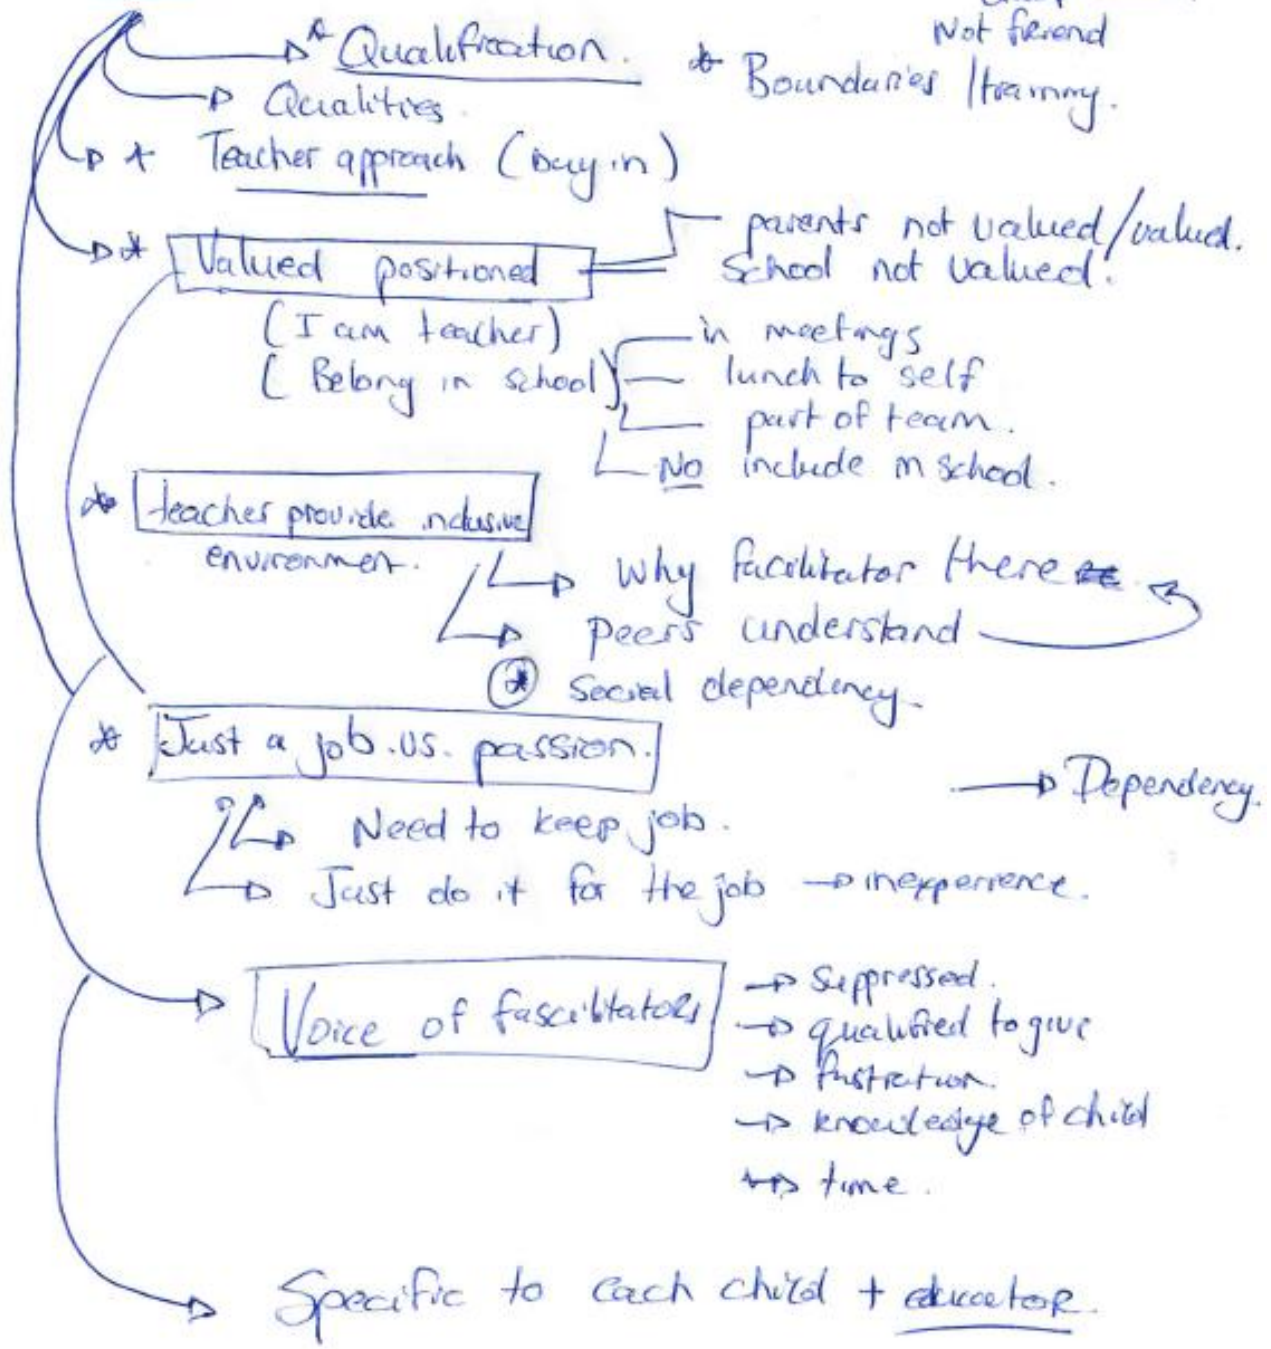 Not friend
* Qualification.
* Boundaries /training.
Qualities.
* Teacher approach (buy in)
* Valued positioned
parents not valued/valued.
School not valued.
(I am teacher)
(Belong in school)
in meetings
lunch to self
part of team.
No include in school.
* teacher provide inclusive
environment.
Why facilitator there
peers understand
* Social dependency.
* Just a job .vs. passion.
Dependency.
Need to keep job.
Just do it for the job → inexperience.
Voice of fascilitators
→ Suppressed.
→ qualified to give
→ frustration.
→ knowledge of child
→ time.
Specific to each child + educator.